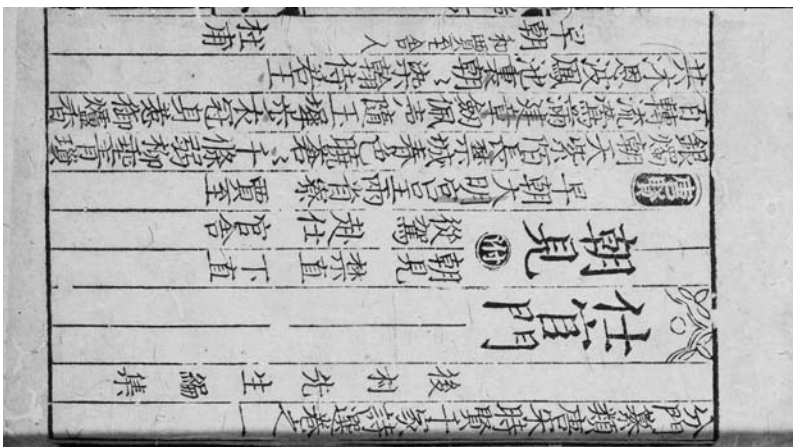 分門纂類唐宋時賢千家詩選卷之一
後村先生編集
仕宦門
朝見 禁直 下直
從駕 赴任 官舍
朝見
唐賢
早朝大明宮呈兩省寮 賈至
銀燭朝天紫陌長禁城春色曉蒼〻千條弱柳垂青瑣
百囀流鶯遶建章劍佩聲隨玉墀步衣冠身惹御爐香
共沐恩波鳳池裏朝〻染翰侍君王
早朝 和賈至舍人 杜甫